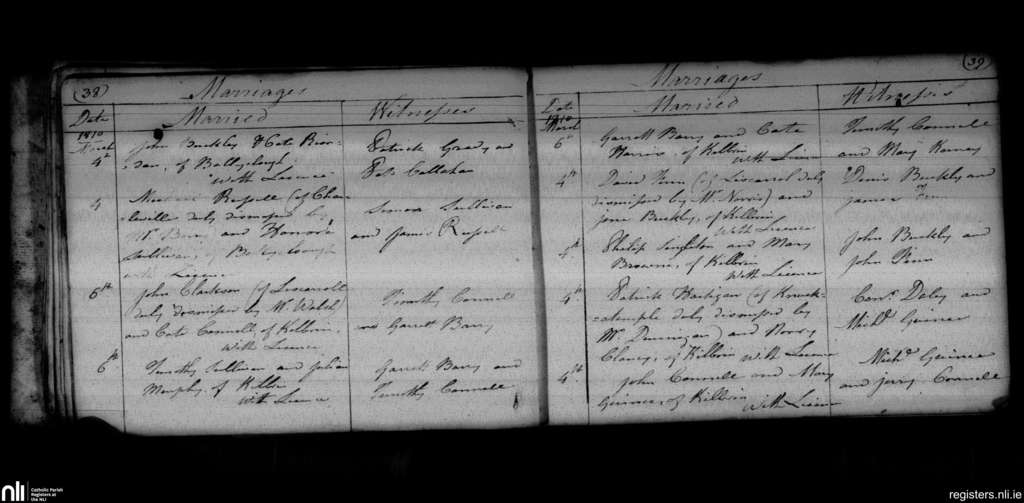 (38)
Marriages
Date
Married
Witnesses
1810
March
4th
John Buckley & Cate Rior-
-dan, of Ballyclough
With Licence
Patrick Grady and
Pat. Callahan
4
Russell (of Char-
leville duly dismissed by
Mr. and Honora
Sullivan, of Ballyclough
with Licence
Simon Sullivan
and James Russell
6th
John Clarkson (of Liscarroll
duly dismissed by Mr. Walsh)
and Cate Connell, of Kilbrin,
With Licence
Timothy Connell
and Garrett Barry
6th
Timothy Sullivan and Julian
Murphy, of Kilbrin
With Licence
Garrett Barry and
Timothy Connell
(39)
Marriages
Date
Married
Witnesses
1810
March
6th
Garrett Barry and Cate
Norris, of Kilbrin
With Licence
Timothy Connell
and Mary
4th
David (of Liscarrol duly
dismissed by Mr. Norris) and
Jane Buckley, of Kilbrin
With Licence
Denis Buckley and
James
4th
Philip Singleton and Mary
Browne, of Kilbrin
With Licence
John Buckley and
John
4th
Patrick Hartigan (of Knock-
-atemple duly dismissed by
Mr. ) and Nory
Clancy, of Kilbrin With Licence
Daly and
Michl. Guinee
4th
John Connell and Mary
Guinee, of Kilbrin
With Licence
Michl. Guinee
and Jerry Connell
nli
Catholic Parish
Registers at
the NLI
registers.nli.ie